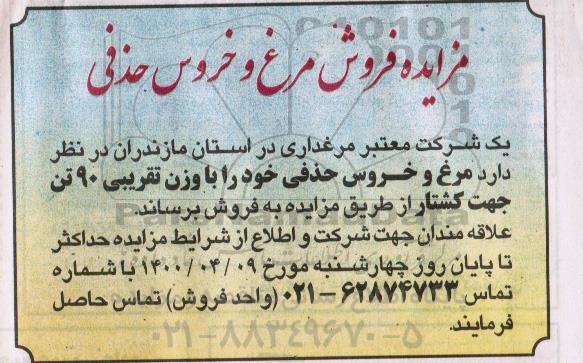 مزایده فروش مرغ و خروس حذفی
یک شرکت معتبر مرغداری در استان مازندران در نظر
دارد مرغ و خروس حذفی خود را با وزن تقریبی ۹۰ تن
جهت کشتار از طریق مزایده به فروش برساند.
علاقه مندان جهت شرکت و اطلاع از شرایط مزایده حداکثر
تا پایان روز چهارشنبه مورخ ۱۴۰۰/۰۴/۰۹ با شماره
تماس ۶۲۸۷۴۷۳۳-۰۲۱ (واحد فروش) تماس حاصل
فرمایند.
۰۲۱-۸۸۳۴۹۶۷۰-۵